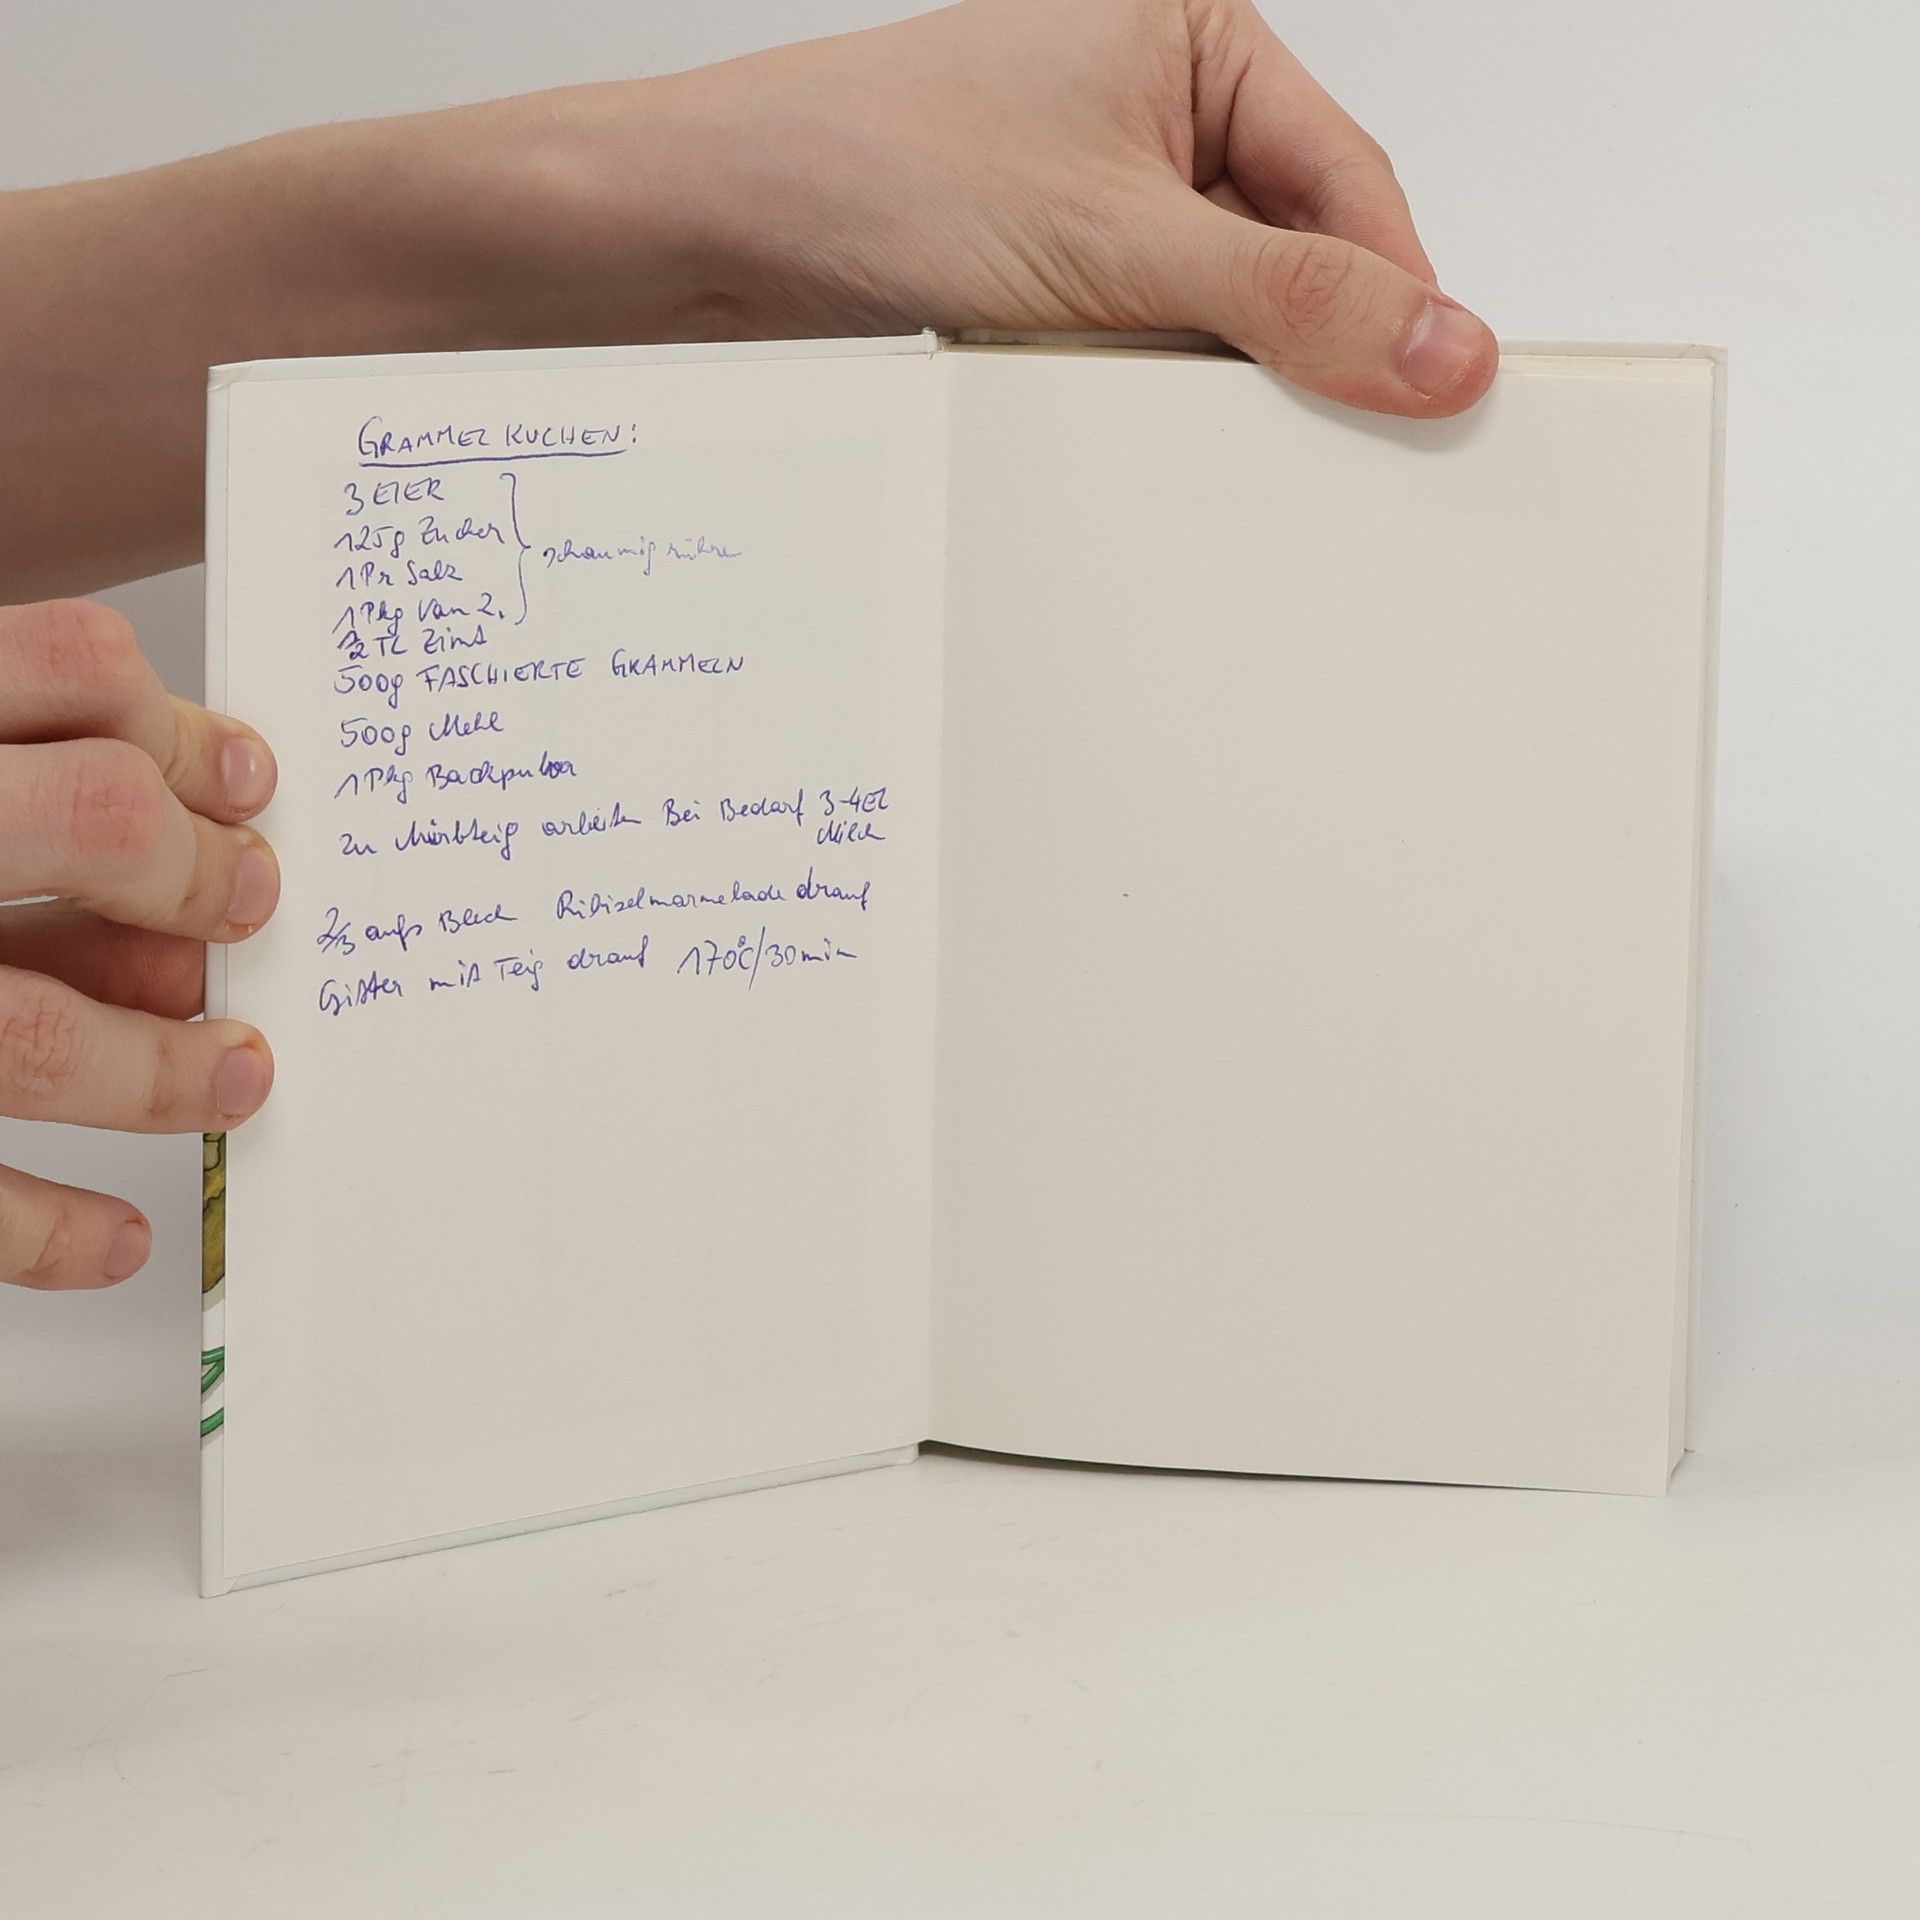 GRAMMEL KUCHEN:
3 EIER
125g Zucker
1 Pr Salz
1 Pkg Van Z.
schaumig rühren
1/2 TL Zimt
500g FASCHIERTE GRAMMELN
500g Mehl
1 Pkg Backpulver
zu Mürbteig arbeiten Bei Bedarf 3-4 EL
Milch
2/3 aufs Blech Ribiselmarmelade drauf
Gitter mit Teig drauf 170°C/30min